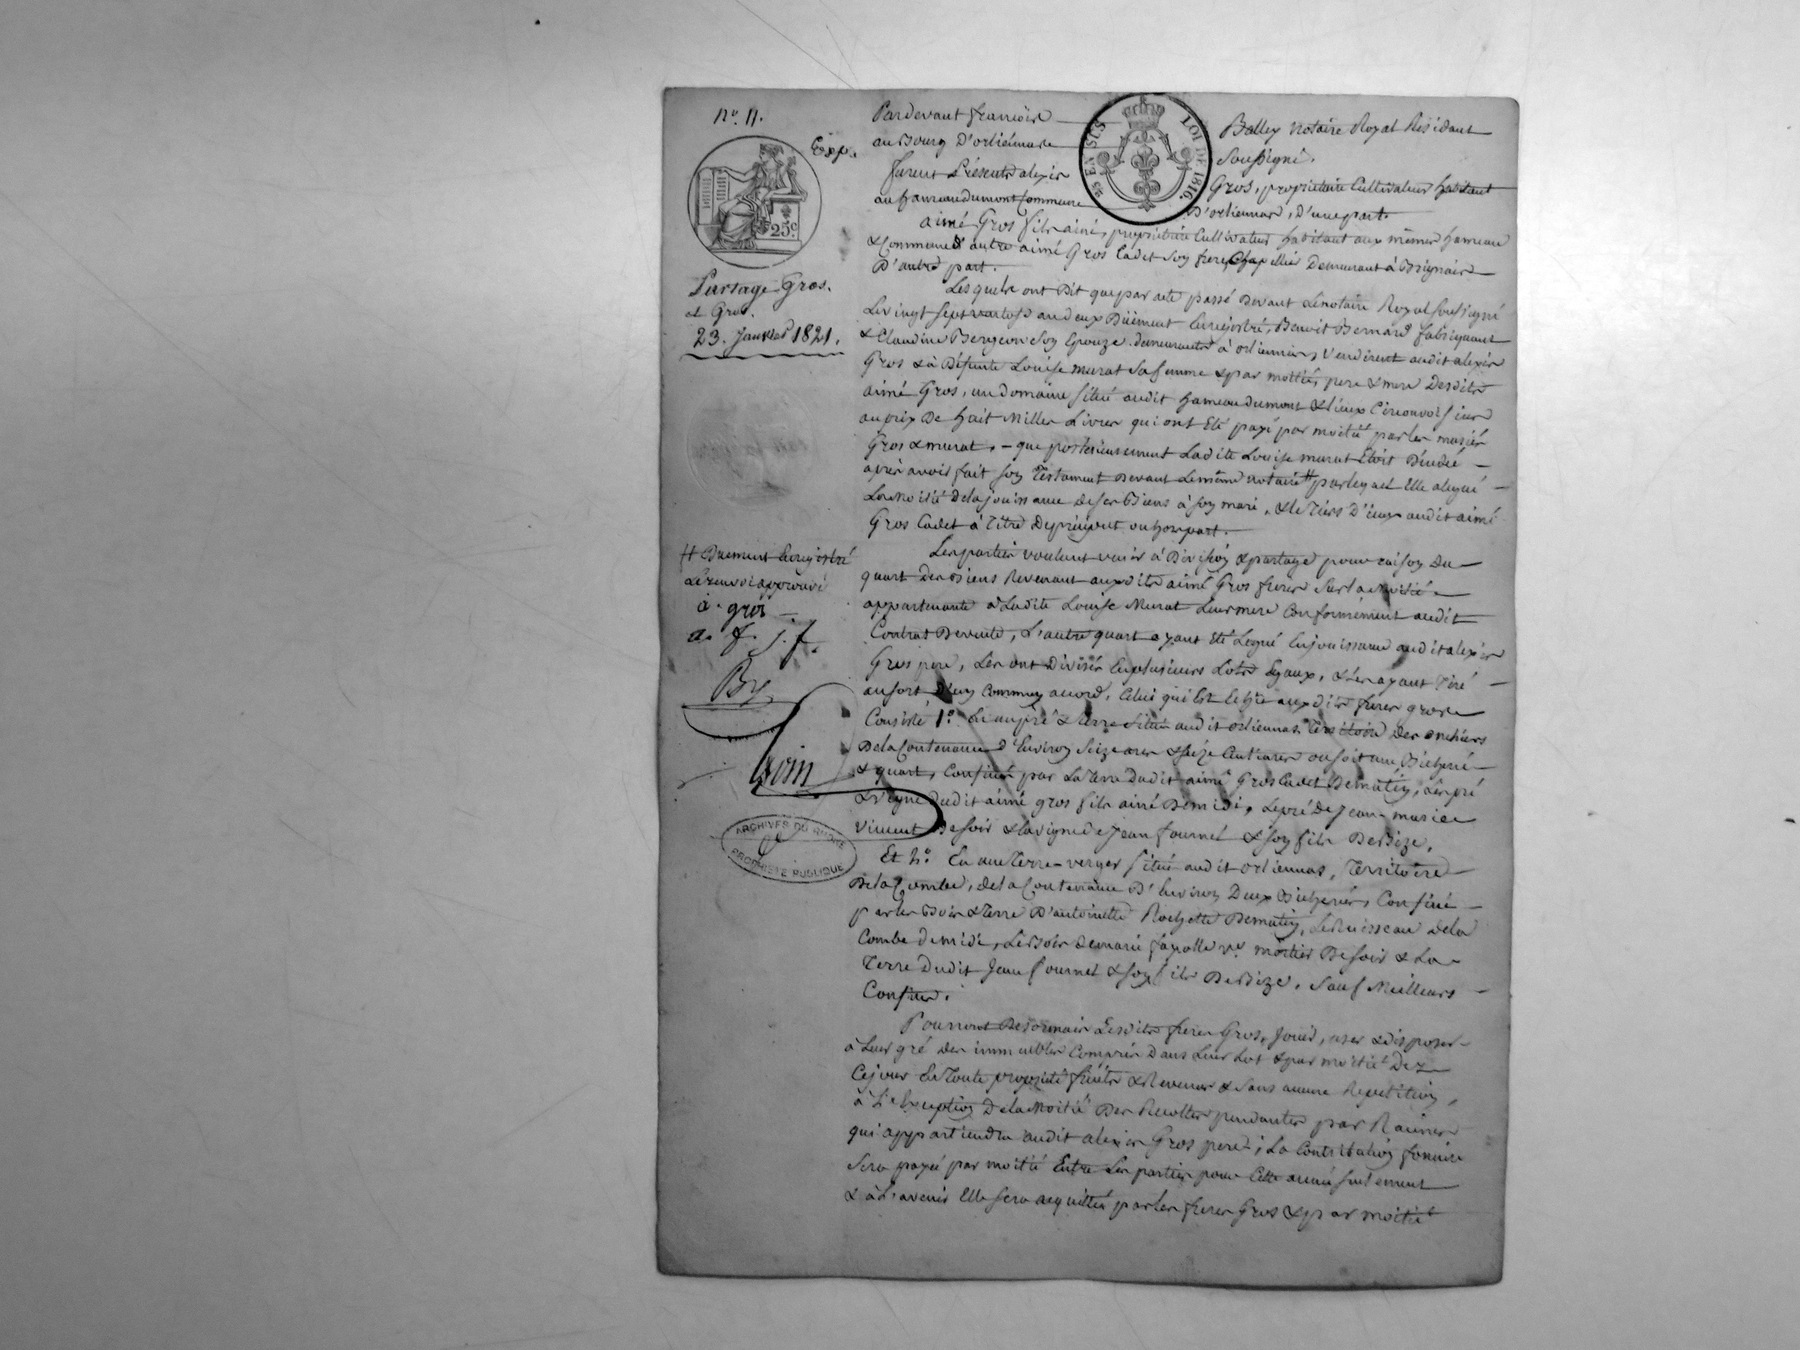 No. 11.
Exp.
25 EN SUS
LOI DE 1816.
25c
Partage Gros.
et Gros.
23. Janvier 1821.
Pardevant françois Balley notaire Royal Résidant
au Bourg D'orliénas soussigné.
furent Présents alexis Gros, propriétaire Cultivateur habitant
au hameau du mont Commune D'orliennas, D'une part.
aimé Gros fils ainé, propriétaire Cultivateur habitant aux mêmes hameau
& Commune & autre aimé Gros Cadet Soy frere, Chapellié Demeurant à Brignais
D'autre part.
Lesquels ont Dit que par acte passé Devant Le notaire Royal soussigné
Le vingt sept an deux Düement Enregistré, Benoit Bernard fabriquant
& Claudine Bergeon Soy Epouze demeurants à orliennas, vendirent audit alexis
Gros & à Défunte Louise murat Sa femme & par moitié, pere & mere Desdits
aimé Gros, un domaine situé audit hameau du mont & Lieux Circonvoisins
au prix De huit Milles Livres qui ont Eté payé par moitié par les mariés
Gros & murat, - que posterieurement Ladite Louise murat Etoit Décédé -
après avoir fait Soy Testament Devant Le même notaire # par lequel Elle a legué -
La Moitié De la jouissance de ses Biens à Soy mari, & le Tiers D'iceux audit aimé
Gros Cadet à Titre De préciput ou hors part.
# Duement Enregistré
Le renvoi approuvé
a. gros
a. f. j. f.
By
Les parties voulant venir à Divisioy & partage pour raisoy Du
quart Des Biens Revenant auxdits aimé Gros freres Sur La Moitié
appartenante à Ladite Louise Murat Leur mere Conformément audit
Contrat De vente, L'autre quart ayant Eté Legué En jouissance audit alexis
Gros pere, Les ont Divisés En plusieurs Lots Egaux, & Les ayant Tiré -
au sort D'un Commun accord, Celui qui Est Echu auxdits freres gros
Consiste 1o. En un pré & Terre situés audit orliennas Territoire Des
De la Contenance D'Environ Seize ares & Seize Centiares ou soit une Bicherée
& quart, Confiné par La Terre Dudit aimé Gros Cadet De matin, Les pré
& vigne Dudit aimé gros fils ainé De midi, Le pré de Jean-marie
Vincent De soir & la vigne de Jean fournel & Soy fils De Bize.
Et 2o. En une Terre-verger situé audit orliennas, Territoire
De la Combe, de la Contenance D'Environ Deux Bicherées, Confiné -
par les Bois & Terre D'antoinette Rochette De matin, Le Ruisseau de la
Combe de midi, Le Bois de marie fayolle ve. mortier De soir & La
Terre Dudit Jean fournel & Soy fils De Bize, Sauf Meilleurs -
Confins.
ARCHIVES DU RHONE
PROPRIÉTÉ PUBLIQUE
Pourront Desormais Lesdits freres Gros, Jouir, user & Disposer
à Leur gré des immeubles Compris Dans Leur Lot & par moitié Dez
Ce jour En Toute propriété fruits & Revenus & Sans aucune Repetition,
à L'Exception De la Moitié Des Recoltes pendantes par Racines
qui appartiendra audit alexis Gros pere; La Contribution fonciere
Sera payée par moitié Entre Les parties pour Cette année seulement
& à L'avenir Elle Sera acquittée par les freres Gros & par moitié